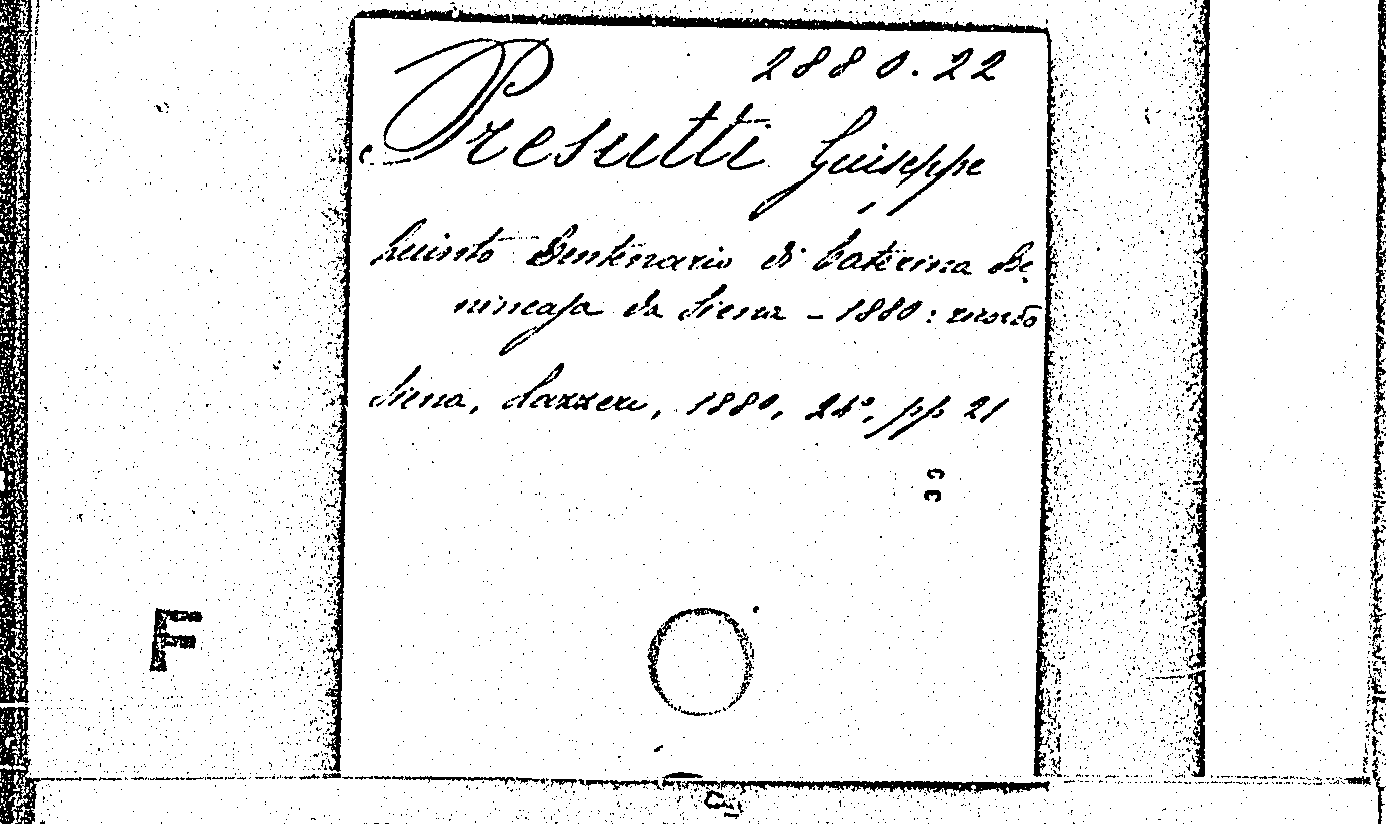 2880.22
Presutti Giuseppe
Quinto Centenario di Caterina Be-
nincasa da Siena - 1880: ricordo
Siena, Lazzeri, 1880, 24°, pp 21
F